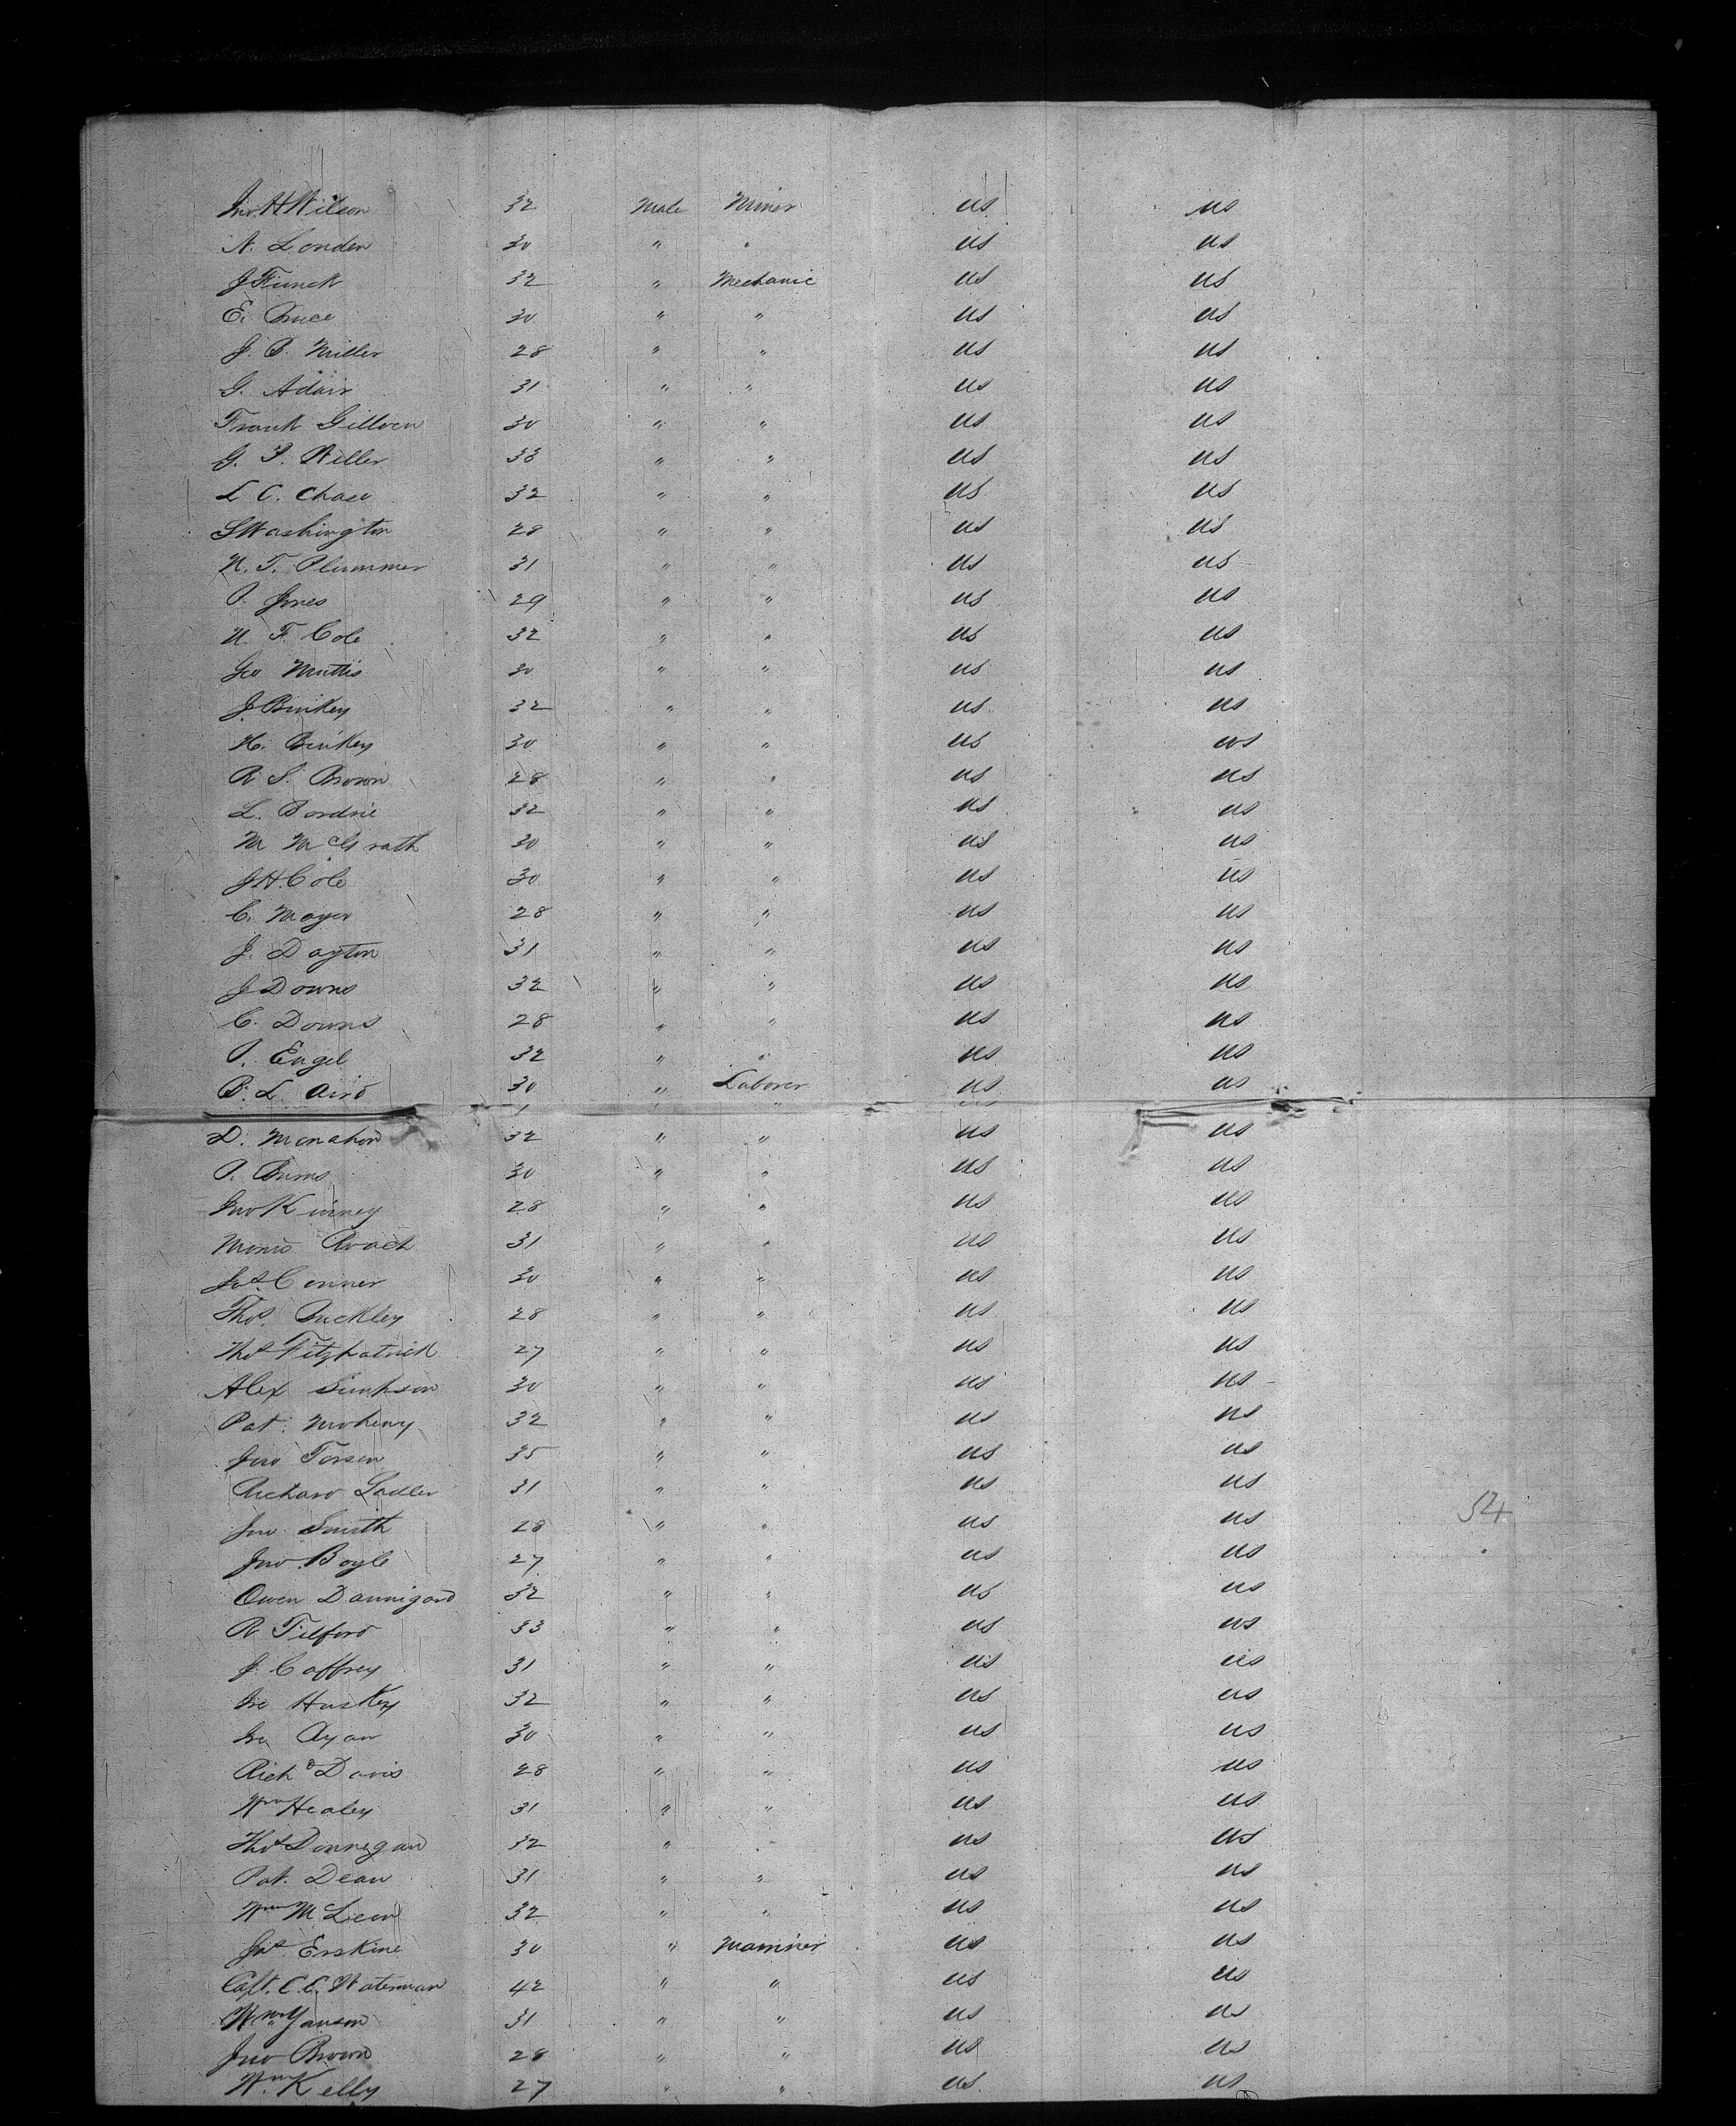 Jno. H Wilson 32 Male Miner US US
A. Londen 30 " " US US
J Funck 32 " Mechanic US US
E. Bruce 30 " " US US
J. B. Miller 28 " " US US
G. Adair 31 " " US US
Frank Gillven 30 " " US US
G. P. Weller 33 " " US US
L C. Chase 32 " " US US
S Washington 28 " " US US
N. T. Plummer 31 " " US US
P. Jones 29 " " US US
N. F. Cole 32 " " US US
Geo Muttis 30 " " US US
J. Binkey 32 " " US US
H. Binkey 30 " " US US
R S. Brown 28 " " US US
L. Bordne 32 " " US US
M McGrath 30 " " US US
J H. Cole 30 " " US US
C. Mayer 28 " " US US
J. Dayton 31 " " US US
J Downs 32 " " US US
C. Downs 28 " " US US
P. Engel 32 " " US US
B. L. Aird 30 " Laborer US US
D. Monahon 32 " " US US
P. Burns 30 " " US US
Jno Kinney 28 " " US US
Morris Roach 31 " " US US
Jas. Conner 30 " " US US
Thos. Buckley 28 " " US US
Thos Fitzpatrick 27 " " US US
Alex Simpson 30 " " US US
Pat. 32 " " US US
Jno Torsen 35 " " US US
Richard Sadler 31 " " US US
Jno Smith 28 " " US US
Jno Boyle 27 " " US US
Owen Dannigand 32 " " US US
R Tilford 33 " " US US
J. Caffrey 31 " " US US
Jno Huskey 32 " " US US
Jno Ryan 30 " " US US
Richd Davis 28 " " US US
Wm Healey 31 " " US US
Thos Donnegan 32 " " US US
Pat. Dean 31 " " US US
Wm McLean 32 " " US US
Jas Erskine 30 " Mariner US US
Capt. C. C. Waterman 42 " " US US
Wm Yanson 31 " " US US
Jno Brown 28 " " US US
Wm Kelly 27 " " US US
54